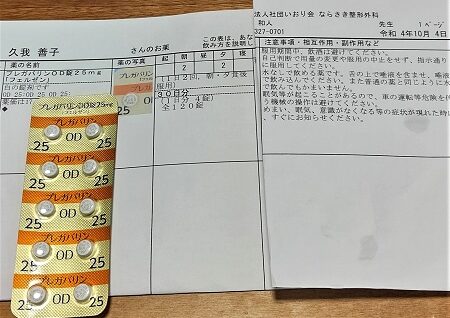 久我 善子 さんのお薬
この表は、あな
飲み方を説明し
薬の名前
起 朝 昼 夕
プレガバリンOD錠25mg
(フェルゼン)
2 2
白の錠剤です
OD:25:OD:25 OD:25:
(1日2回,朝・夕食後
服用)
30日分
(1日 4錠)
全120錠
法人社団いおり会 ならさき整形外科
和人 先生 1ページ
327-0701 令和 4年10月 4日
注意事項・相互作用・副作用など
服用期間中、飲酒は避けてください。
自己判断で用量の変更や服用の中止をせず、指示通り
に服用してください。
水なしで飲める薬です。舌の上で唾液を含ませ、唾液
で飲んでください。また普通の薬と同じように水
で飲んでもかまいません。
眠気等が起こることがあるので、車の運転等危険を伴
う機械の操作は避けてください。
めまい、眠気、意識がなくなる等の症状が現れた時に
、すぐにお知らせください。
プレガバリンOD錠25mg
「フェルゼン」
25 OD 25
プレガバリン
25 OD 25
プレガバリン
25 OD 25
プレガバリン
25 OD 25
プレガバリン
25 OD 25